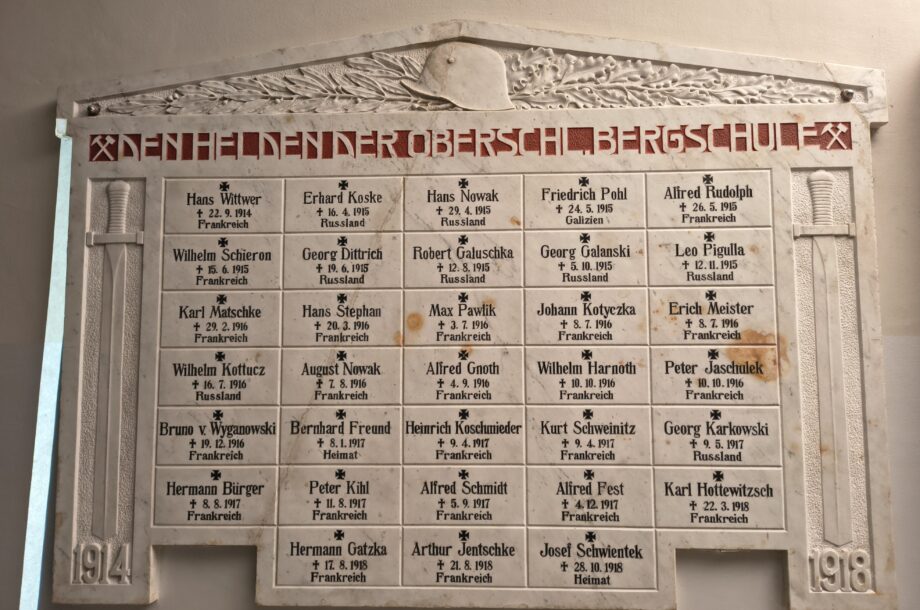 DEN HELDEN DER OBERSCHL. BERGSCHULE
Hans Wittwer
† 22. 9. 1914
Frankreich
Erhard Koske
† 16. 4. 1915
Russland
Hans Nowak
† 29. 4. 1915
Russland
Friedrich Pohl
† 24. 5. 1915
Galizien
Alfred Rudolph
† 26. 5. 1915
Frankreich
Wilhelm Schieron
† 15. 6. 1915
Frankreich
Georg Dittrich
† 19. 6. 1915
Russland
Robert Galuschka
† 12. 8. 1915
Russland
Georg Galanski
† 5. 10. 1915
Russland
Leo Pigulla
† 12. 11. 1915
Russland
Karl Matschke
† 29. 2. 1916
Frankreich
Hans Stephan
† 20. 3. 1916
Frankreich
Max Pawlik
† 3. 7. 1916
Frankreich
Johann Kotyczka
† 8. 7. 1916
Frankreich
Erich Meister
† 8. 7. 1916
Frankreich
Wilhelm Kottucz
† 16. 7. 1916
Russland
August Nowak
† 7. 8. 1916
Frankreich
Alfred Gnoth
† 4. 9. 1916
Frankreich
Wilhelm Harnoth
† 10. 10. 1916
Frankreich
Peter Jaschulek
† 10. 10. 1916
Frankreich
Bruno v. Wyganowski
† 19. 12. 1916
Frankreich
Bernhard Freund
† 8. 1. 1917
Heimat
Heinrich Koschmieder
† 9. 4. 1917
Frankreich
Kurt Schweinitz
† 9. 4. 1917
Frankreich
Georg Karkowski
† 9. 5. 1917
Russland
Hermann Bürger
† 8. 8. 1917
Frankreich
Peter Kihl
† 11. 8. 1917
Frankreich
Alfred Schmidt
† 5. 9. 1917
Frankreich
Alfred Fest
† 4. 12. 1917
Frankreich
Karl Hottewitzsch
† 22. 3. 1918
Frankreich
Hermann Gatzka
† 17. 8. 1918
Frankreich
Arthur Jentschke
† 21. 8. 1918
Frankreich
Josef Schwientek
† 28. 10. 1918
Heimat
1914
1918